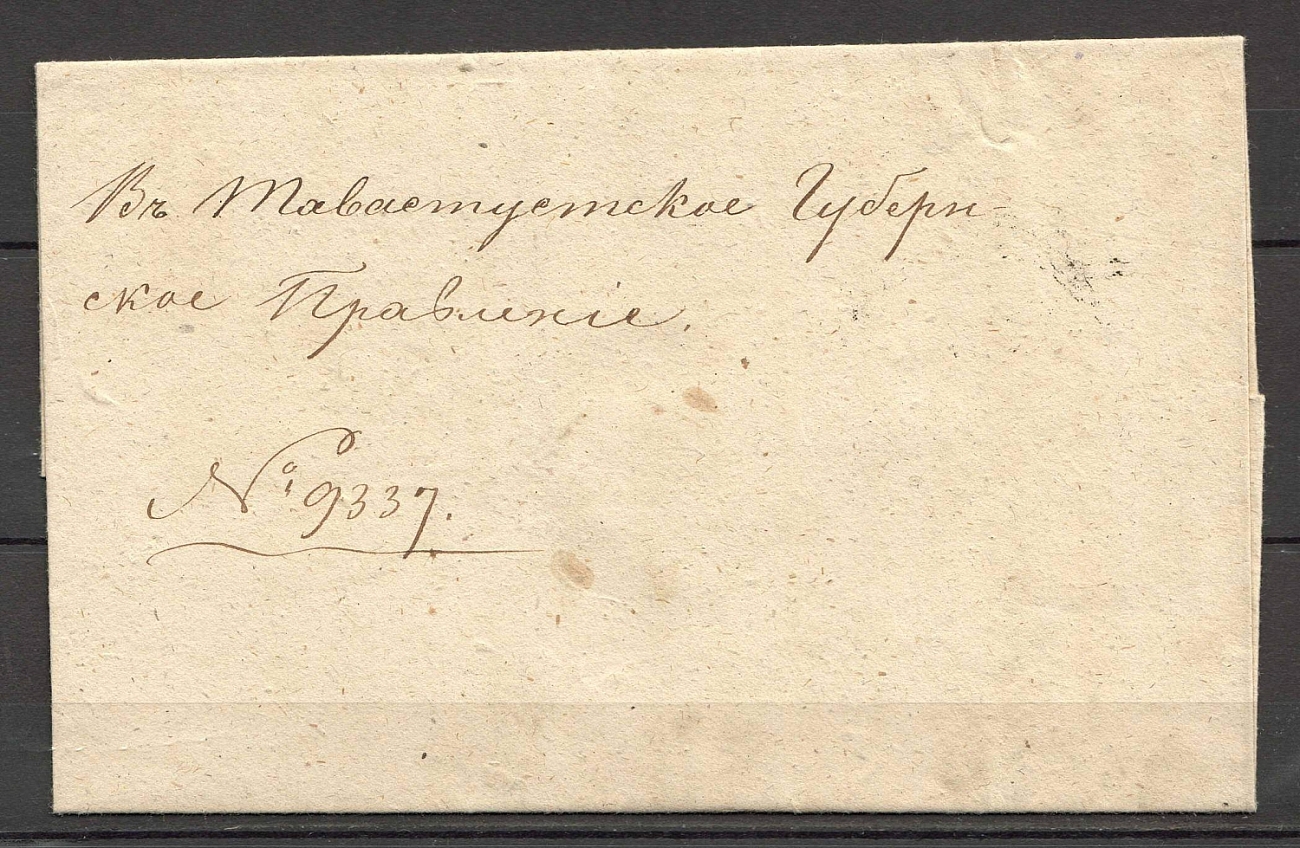 Въ Тавастустское Губерн-
ское Правленіе.
№ 9337.